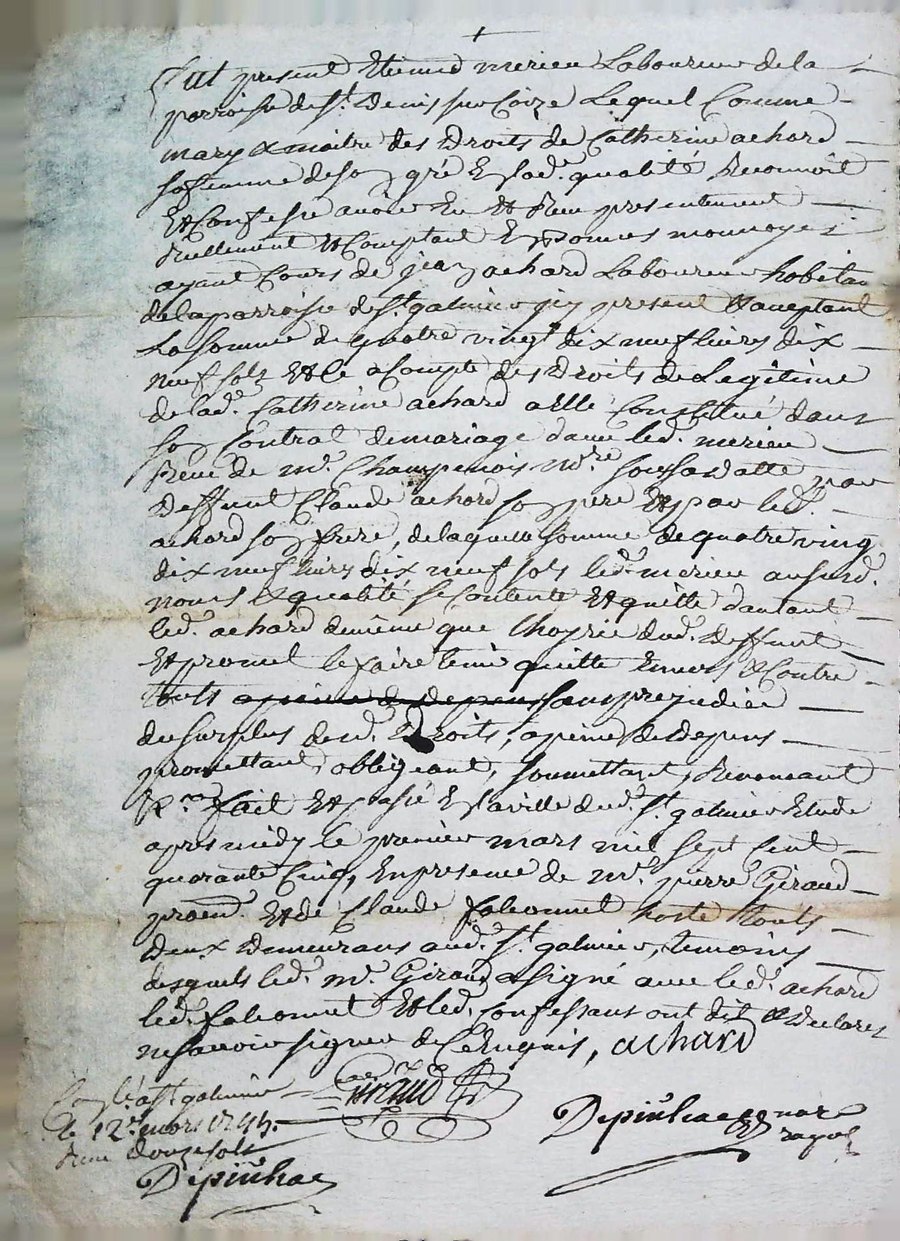 Fut present Etienne merieu Laboureur de la
parroisse de St. Denis sur Coize Lequel Comme
mary & maitre des Droits de Catherine achard
sa femme de son gré En lad. qualité Reconnoit
Et Confesse avoir Eu Et Reçu presentement
Reellement Et Comptant En bonnes monnoyes
ayant Cours de jean achard Laboureur habitan
de la parroisse de St. galmier icy present Et aceptant
La somme de quatre vingt dix neuf livres dix
neuf sols Et Ce a Compte des Droits de Legitime
de lad. Catherine achard a Elle Constitué dans
son Contrat de mariage avec led. merieu
Receu de Me. Champenois Nre. sous sa datte par
deffunt Claude achard son pere Et par led.
achard son frere, de laquelle somme de quatre ving
dix neuf livres dix neuf sols led. merieu aususd.
noms & qualité se Contente Et quitte dautant
led. achard de même que Lhoyrie dud. deffunt
Et promet le faire tenir quitte Envers & Contre
touts a peine de depens sans prejudice
du surplus desd. Droits, a peine de depens
promettant, obligeant, soumettant, Renoncant
fait Et passé En la ville dud. St. galmier Etude
apres midy le premier mars mil sept Cent
quarante Cinq, En presence de Mr. pierre Giraud
Et de Claude falconnet hoste touts
deux Demeurans aud. St. galmier, temoins
desquels led. Mr. Giraud a signé avec led. achard
led. falconnet Et led. Confessant ont dit & declarez
ne savoir signer de Ce Enquis, achard
Giraud
Conlé a St galmier
le 12e. mars 1745.
Receu douze sols
Depinhac
Depinhac nore
royal